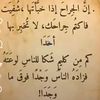 . إنَّ الجراح إذا خبَّأتها ، شُفيت
فاكتُم جراحك ، لا تُخبر بها
أحَدا
كم من كليمٍ شكا للناس لوعتَهُ
فزادهُ النَّاسُ وَجَدًا فوق ما
وَجَدَا !